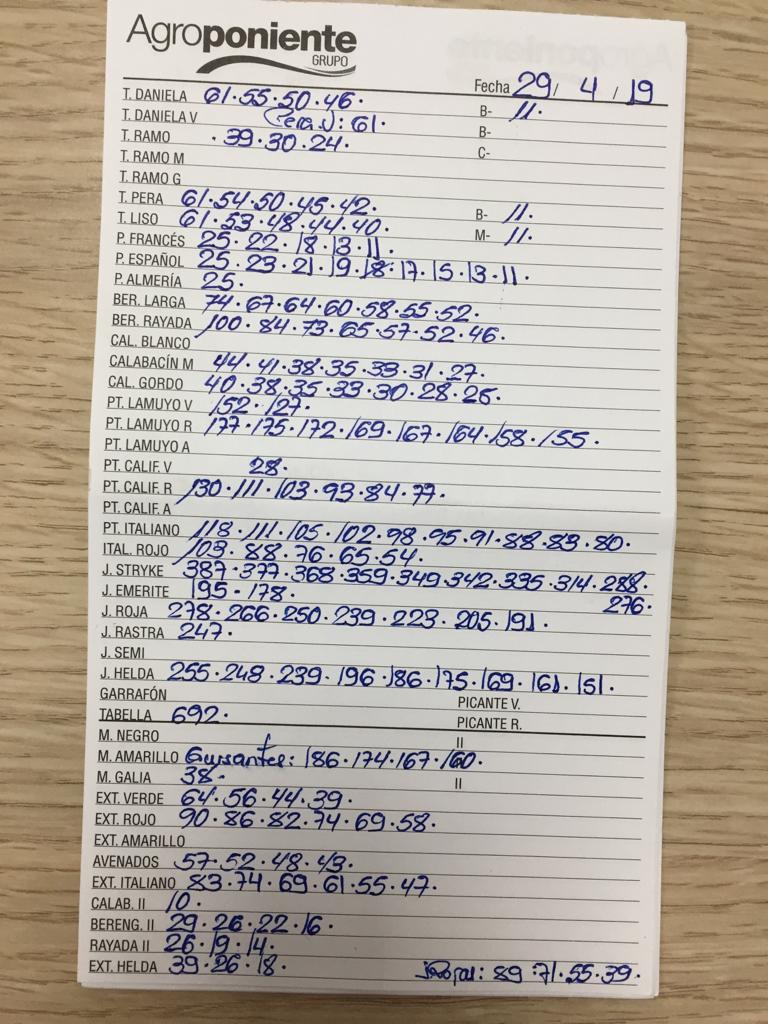 Agroponiente
GRUPO
Fecha 29/ 4 /19
T. DANIELA 61·55·50·46· B- 11·
T. DANIELA V (Pera V): 61· B-
T. RAMO ·39·30·24· C-
T. RAMO M
T. RAMO G
T. PERA 61·54·50·45·42· B- 11·
T. LISO 61·53·48·44·40· M- 11·
P. FRANCÉS 25·22·18·13·11·
P. ESPAÑOL 25·23·21·19·18·17·15·13·11·
P. ALMERÍA 25·
BER. LARGA 74·67·64·60·58·55·52·
BER. RAYADA 100·84·73·65·57·52·46·
CAL. BLANCO
CALABACÍN M 44·41·38·35·33·31·27·
CAL. GORDO 40·38·35·33·30·28·26·
PT. LAMUYO V 152·127·
PT. LAMUYO R 177·175·172·169·167·164·158·155·
PT. LAMUYO A
PT. CALIF. V 28·
PT. CALIF. R 130·111·103·93·84·77·
PT. CALIF. A
PT. ITALIANO 118·111·105·102·98·95·91·88·83·80·
ITAL. ROJO 103·88·76·65·54·
J. STRYKE 387·377·368·359·349·342·335·314·288·
J. EMERITE 195·178· 276·
J. ROJA 278·266·250·239·223·205·191·
J. RASTRA 247·
J. SEMI
J. HELDA 255·248·239·196·186·175·169·161·151·
GARRAFÓN PICANTE V.
TABELLA 692· PICANTE R.
M. NEGRO II
M. AMARILLO Guisantes: 186·174·167·160·
M. GALIA 38· II
EXT. VERDE 64·56·44·39·
EXT. ROJO 90·86·82·74·69·58·
EXT. AMARILLO
AVENADOS 57·52·48·43·
EXT. ITALIANO 83·74·69·61·55·47·
CALAB. II 10·
BERENG. II 29·26·22·16·
RAYADA II 26·19·14·
EXT. HELDA 39·26·18· 89·71·55·39·